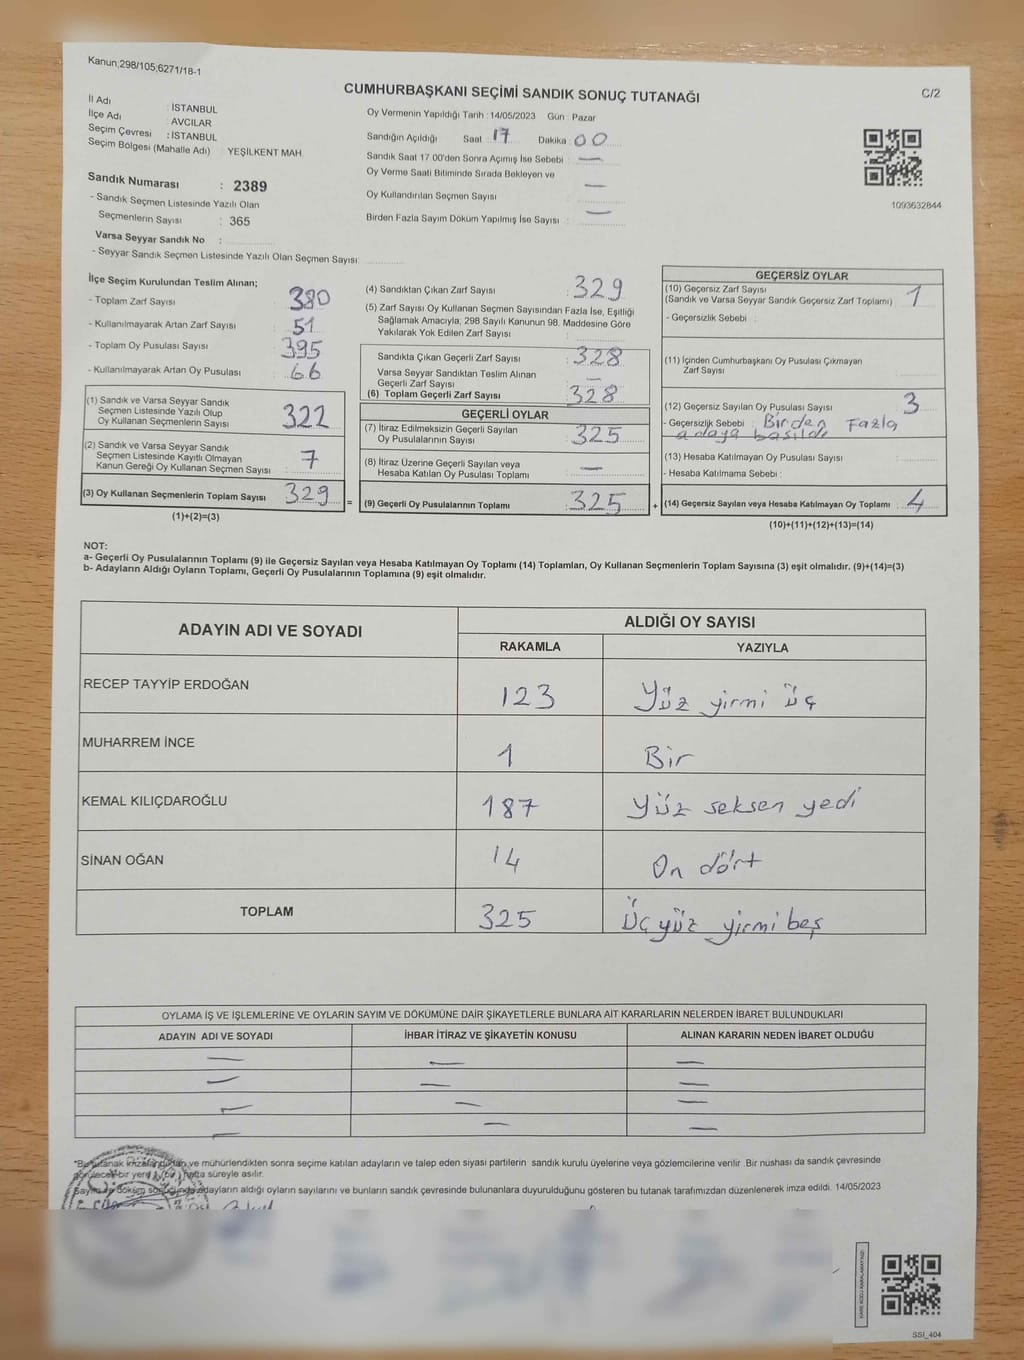 Kanun;298/105;6271/18-1
CUMHURBAŞKANI SEÇİMİ SANDIK SONUÇ TUTANAĞI
C/2
İl Adı : İSTANBUL
İlçe Adı : AVCILAR
Seçim Çevresi : İSTANBUL
Seçim Bölgesi (Mahalle Adı) : YEŞİLKENT MAH.
Sandık Numarası : 2389
- Sandık Seçmen Listesinde Yazılı Olan
Seçmenlerin Sayısı : 365
Varsa Seyyar Sandık No :
- Seyyar Sandık Seçmen Listesinde Yazılı Olan Seçmen Sayısı:
Oy Vermenin Yapıldığı Tarih : 14/05/2023 Gün : Pazar
Sandığın Açıldığı Saat : 17 Dakika : 00
Sandık Saat 17.00'den Sonra Açımış İse Sebebi : —
Oy Verme Saati Bitiminde Sırada Bekleyen ve
Oy Kullandırılan Seçmen Sayısı : —
Birden Fazla Sayım Döküm Yapılmış İse Sayısı : —
1093632844
İlçe Seçim Kurulundan Teslim Alınan;
- Toplam Zarf Sayısı : 380
- Kullanılmayarak Artan Zarf Sayısı : 51
- Toplam Oy Pusulası Sayısı : 395
- Kullanılmayarak Artan Oy Pusulası : 66
(1) Sandık ve Varsa Seyyar Sandık
Seçmen Listesinde Yazılı Olup
Oy Kullanan Seçmenlerin Sayısı : 322
(2) Sandık ve Varsa Seyyar Sandık
Seçmen Listesinde Kayıtlı Olmayan
Kanun Gereği Oy Kullanan Seçmen Sayısı : 7
(3) Oy Kullanan Seçmenlerin Toplam Sayısı : 329 =
(1)+(2)=(3)
(4) Sandıktan Çıkan Zarf Sayısı : 329
(5) Zarf Sayısı Oy Kullanan Seçmen Sayısından Fazla İse, Eşitliği
Sağlamak Amacıyla; 298 Sayılı Kanunun 98. Maddesine Göre
Yakılarak Yok Edilen Zarf Sayısı :
Sandıkta Çıkan Geçerli Zarf Sayısı : 328
Varsa Seyyar Sandıktan Teslim Alınan
Geçerli Zarf Sayısı : —
(6) Toplam Geçerli Zarf Sayısı : 328
GEÇERLİ OYLAR
(7) İtiraz Edilmeksizin Geçerli Sayılan
Oy Pusulalarının Sayısı : 325
(8) İtiraz Üzerine Geçerli Sayılan veya
Hesaba Katılan Oy Pusulası Toplamı : —
(9) Geçerli Oy Pusulalarının Toplamı : 325 +
GEÇERSİZ OYLAR
(10) Geçersiz Zarf Sayısı
(Sandık ve Varsa Seyyar Sandık Geçersiz Zarf Toplamı) : 1
- Geçersizlik Sebebi :
(11) İçinden Cumhurbaşkanı Oy Pusulası Çıkmayan
Zarf Sayısı :
(12) Geçersiz Sayılan Oy Pusulası Sayısı : 3
- Geçersizlik Sebebi : Birden Fazla
adaya basıldı
(13) Hesaba Katılmayan Oy Pusulası Sayısı :
- Hesaba Katılmama Sebebi :
(14) Geçersiz Sayılan veya Hesaba Katılmayan Oy Toplamı : 4
(10)+(11)+(12)+(13)=(14)
NOT:
a- Geçerli Oy Pusulalarının Toplamı (9) ile Geçersiz Sayılan veya Hesaba Katılmayan Oy Toplamı (14) Toplamları, Oy Kullanan Seçmenlerin Toplam Sayısına (3) eşit olmalıdır. (9)+(14)=(3)
b- Adayların Aldığı Oyların Toplamı, Geçerli Oy Pusulalarının Toplamına (9) eşit olmalıdır.
ADAYIN ADI VE SOYADI
ALDIĞI OY SAYISI
RAKAMLA YAZIYLA
RECEP TAYYİP ERDOĞAN 123 Yüz yirmi üç
MUHARREM İNCE 1 Bir
KEMAL KILIÇDAROĞLU 187 Yüz seksen yedi
SİNAN OĞAN 14 On dört
TOPLAM 325 Üç yüz yirmi beş
OYLAMA İŞ VE İŞLEMLERİNE VE OYLARIN SAYIM VE DÖKÜMÜNE DAİR ŞİKAYETLERLE BUNLARA AİT KARARLARIN NELERDEN İBARET BULUNDUKLARI
ADAYIN ADI VE SOYADI İHBAR İTİRAZ VE ŞİKAYETİN KONUSU ALINAN KARARIN NEDEN İBARET OLDUĞU
— — —
— — —
— — —
— — —
tutanak ve mühürlendikten sonra seçime katılan adayların ve talep eden siyasi partilerin sandık kurulu üyelerine veya gözlemcilerine verilir. Bir nüshası da sandık çevresinde
bir yere hafta süreyle asılır.
döküm adayların aldığı oyların sayılarını ve bunların sandık çevresinde bulunanlara duyurulduğunu gösteren bu tutanak tarafımızdan düzenlenerek imza edildi. 14/05/2023
KARE KODU KARALAMAYINIZ!
SSİ_404